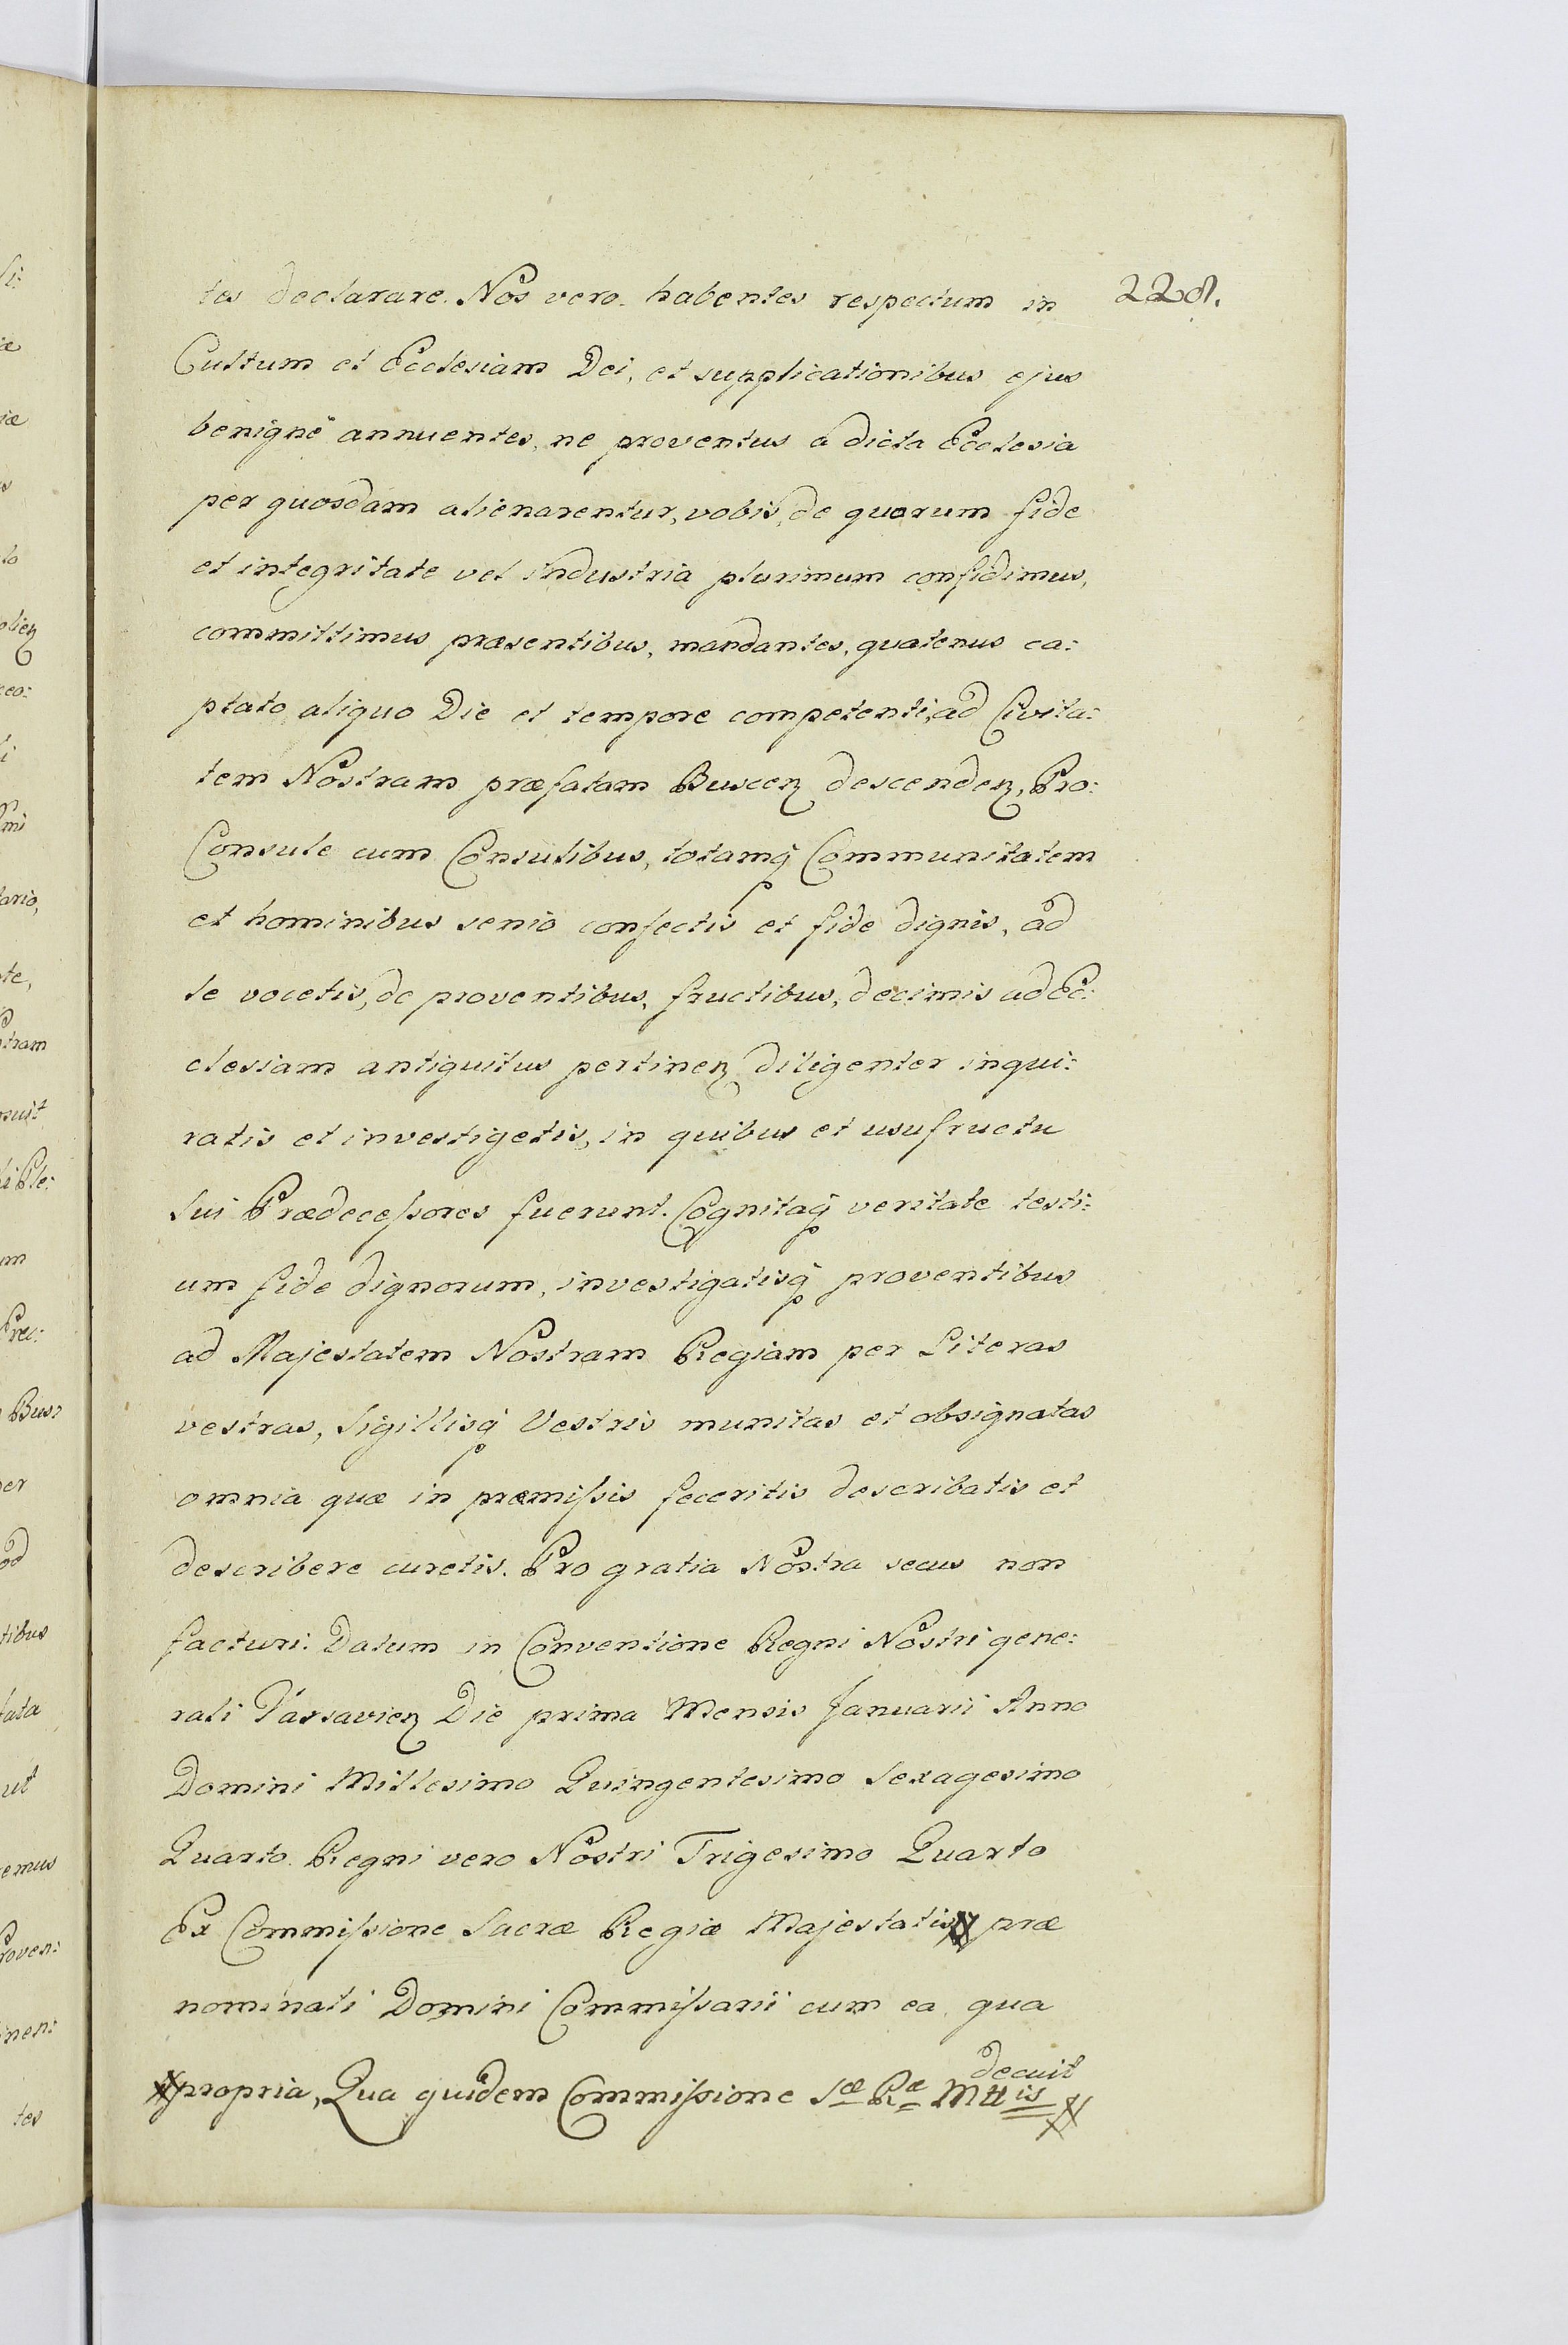 228.
tes declarare. Nos vero habentes respectum in
Cultum et Ecclesiam Dei, et supplicationibus ejus
benigne annuentes, ne proventus a dicta Ecclesia
per quosdam alienarentur, vobis, de quorum fide
et integritate vel industria plurimum confidimus,
committimus præsentibus, mandantes, quatenus ca:
ptato aliquo Die et tempore competenti, ad Civita:
tem Nostram præfatam Buscen descenden, Pro:
Consule cum Consulibus, totamq Communitatem
et hominibus senio confectis et fide dignis, ad
se vocetis, de proventibus, fructibus, decimis ad Ec:
clesiam antiquitus pertinen diligenter inqui:
ratis et investigetis, in quibus et usufructu
sui Prædecessores fuerunt. Cognitaq veritate testi:
um fide dignorum, investigatisq proventibus
ad Majestatem Nostram Regiam per Literas
vestras, Sigillisq Vestris munitas et obsignatas
omnia quæ in præmissis feceritis describatis et
describere curetis. Pro gratia Nostra secus non
facturi. Datum in Conventione Regni Nostri gene:
rali Varsavien Die prima Mensis Januarii Anno
Domini Millesimo Quingentesimo Sexagesimo
Quarto. Regni vero Nostri Trigesimo Quarto
Ex Commissione Sacræ Regiæ Majestatis præ
nominati Domini Commissarii cum ea, qua
decuit
propria, Qua quidem Commissione Sæ Ræ Mttis